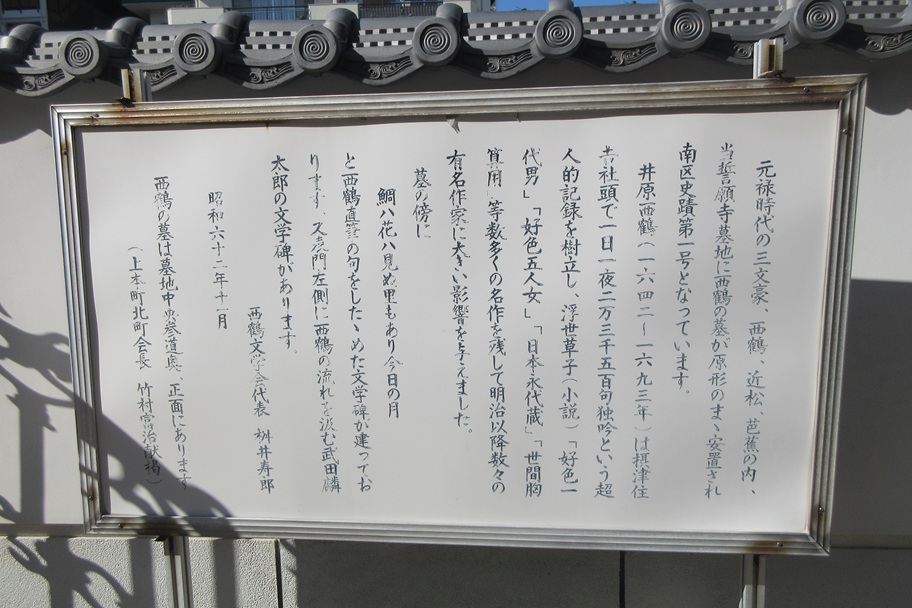 元禄時代の三文豪、西鶴、近松、芭蕉の内、
当誓願寺墓地に西鶴の墓が原形のまゝ安置され
南区史蹟第一号となっています。
井原西鶴(一六四二〜一六九三年)は摂津住
吉社頭で一日一夜二万三千五百句独吟という超
人的記録を樹立し、浮世草子(小説)「好色一
代男」「好色五人女」「日本永代蔵」「世間胸
算用」等数多くの名作を残して明治以降数々の
有名作家に大きい影響を与えました。
墓の傍に
鯛ハ花ハ見ぬ里もあり今日の月
と西鶴直筆の句をしたゝめた文学碑が建ってお
ります。又志門左側に西鶴の流れを汲む武田麟
太郎の文学碑があります。
西鶴文学会代表 桝井寿郎
昭和六十二年十一月
西鶴の墓は墓地中央参道奥、正面にあります
(上本町北町会長 竹村富治献掲)